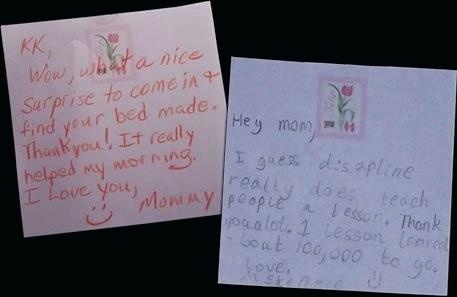 KK,
Wow, what a nice
surprise to come in &
find your bed made.
Thank you! It really
helped my morning.
I Love you,
Mommy
Hey mom,
I guess disapline
really does teach
people a lesson. Thank
you alot. 1 lesson learned
bout 100,000 to go.
Love,
McKenzie